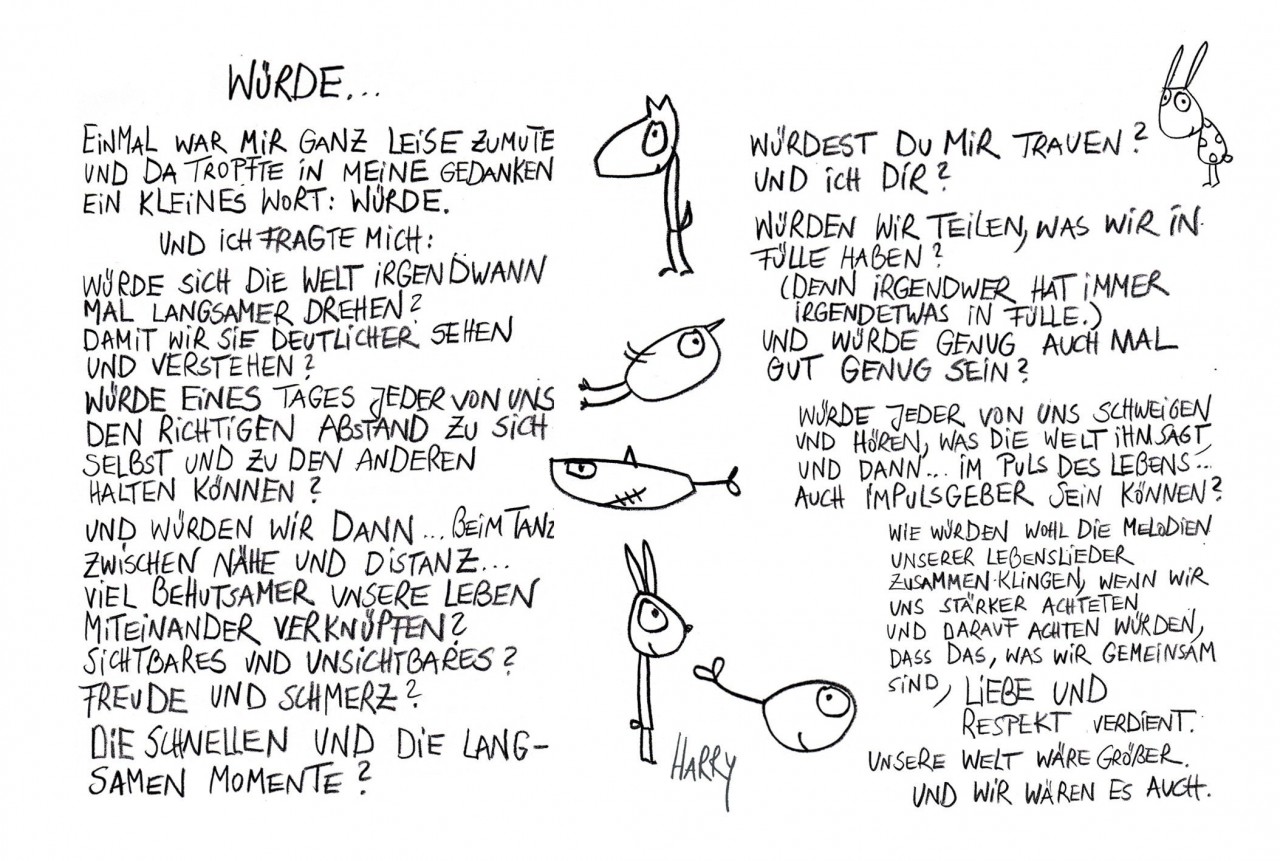 WÜRDE...
EINMAL WAR MIR GANZ LEISE ZUMUTE
UND DA TROPFTE IN MEINE GEDANKEN
EIN KLEINES WORT: WÜRDE.
UND ICH FRAGTE MICH:
WÜRDE SICH DIE WELT IRGENDWANN
MAL LANGSAMER DREHEN?
DAMIT WIR SIE DEUTLICHER SEHEN
UND VERSTEHEN?
WÜRDE EINES TAGES JEDER VON UNS
DEN RICHTIGEN ABSTAND ZU SICH
SELBST UND ZU DEN ANDEREN
HALTEN KÖNNEN?
UND WÜRDEN WIR DANN... BEIM TANZ
ZWISCHEN NÄHE UND DISTANZ...
VIEL BEHUTSAMER UNSERE LEBEN
MITEINANDER VERKNÜPFEN?
SICHTBARES UND UNSICHTBARES?
FREUDE UND SCHMERZ?
DIE SCHNELLEN UND DIE LANG-
SAMEN MOMENTE?
HARRY
WÜRDEST DU MIR TRAUEN?
UND ICH DIR?
WÜRDEN WIR TEILEN, WAS WIR IN
FÜLLE HABEN?
(DENN IRGENDWER HAT IMMER
IRGENDETWAS IN FÜLLE.)
UND WÜRDE GENUG AUCH MAL
GUT GENUG SEIN?
WÜRDE JEDER VON UNS SCHWEIGEN
UND HÖREN, WAS DIE WELT IHM SAGT,
UND DANN... IM PULS DES LEBENS...
AUCH IMPULSGEBER SEIN KÖNNEN?
WIE WÜRDEN WOHL DIE MELODIEN
UNSERER LEBENSLIEDER
ZUSAMMEN-KLINGEN, WENN WIR
UNS STÄRKER ACHTETEN
UND DARAUF ACHTEN WÜRDEN,
DASS DAS, WAS WIR GEMEINSAM
SIND, LIEBE UND
RESPEKT VERDIENT.
UNSERE WELT WÄRE GRÖßER.
UND WIR WÄREN ES AUCH.